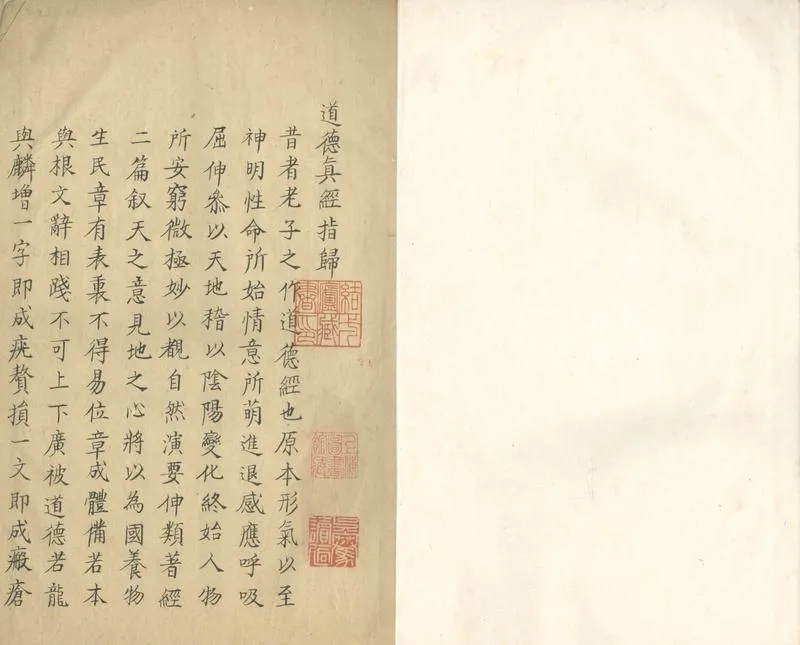 道德眞經指歸
昔者老子之作道德經也原本形氣以至
神明性命所始情意所萌進退感應呼吸
屈伸叅以天地稽以陰陽變化終始人物
所安窮微極妙以觀自然演要伸類著經
二篇叙天之意見地之心將以為國養物
生民章有表裏不得易位章成體備若本
與根文辭相踐不可上下廣被道德若龍
與麟增一字即成疣贅損一文即成瘢瘡